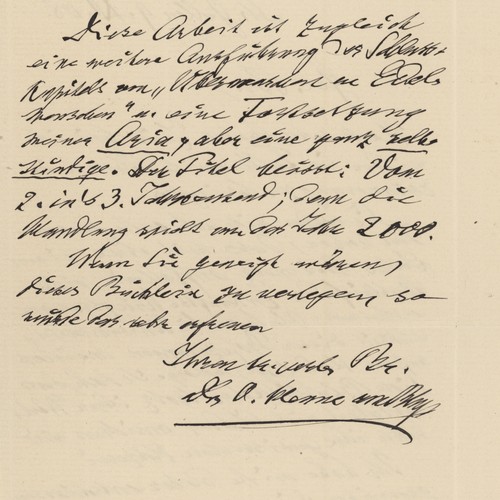 Diese Arbeit ist zugleich
eine weitere Ausführung des Schluss-
Kapitels von „Übermenschen u. Edel-
menschen" u. eine Fortsetzung
meiner Aria, aber eine ganz selbs-
tändige. Der Titel heisst: Vom
2. ins 3. Jahrtausend; denn die
Handlung reicht um das Jahr 2000.
Wenn Sie geneigt wären,
dieses Büchlein zu verlegen, so
würde das sehr erfreuen
Ihren
Dr. A.